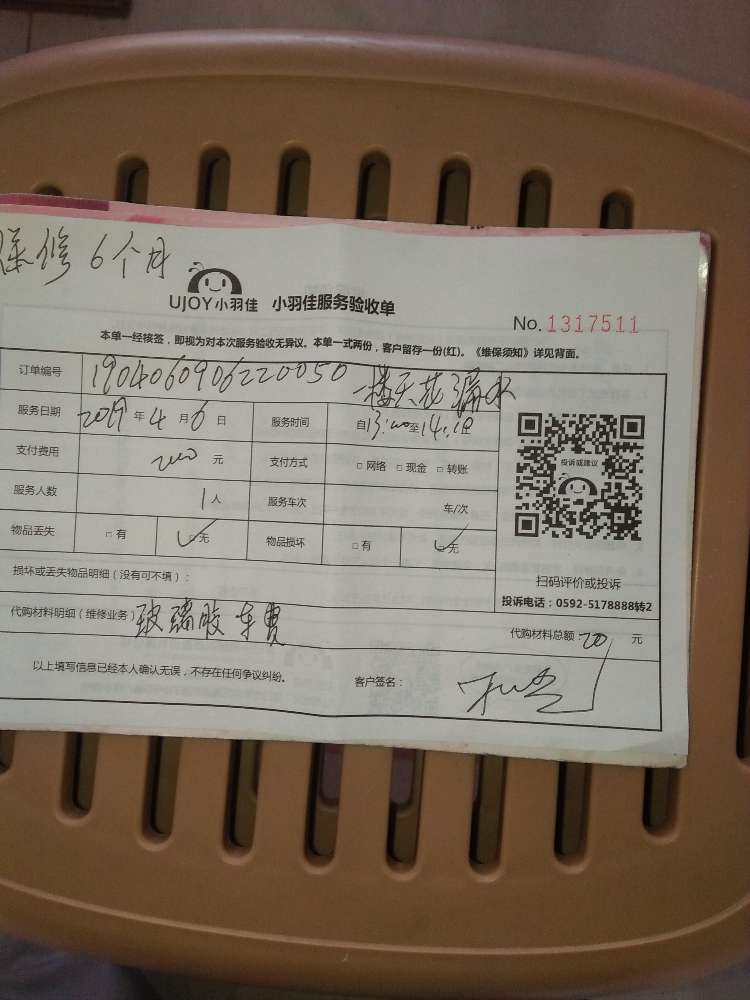 保修6个月
UJOY小羽佳 小羽佳服务验收单
No. 1317511
本单一经接签，即视为对本次服务验收无异议。本单一式两份，客户留存一份(红)。《维保须知》详见背面。
订单编号 1904060906220050 一楼天花漏水
服务日期 2019年4月6日 服务时间 自13:00至14:10止
支付费用 元 支付方式 □网络 □现金 □转账
投诉或建议
服务人数 1人 服务车次 车/次
物品丢失 □有 □无 物品损坏 □有 □无
扫码评价或投诉
损坏或丢失物品明细（没有可不填）：
投诉电话：0592-5178888转2
代购材料明细（维修业务） 玻璃胶 车费 代购材料总额 20 元
以上填写信息已经本人确认无误，不存在任何争议纠纷。 客户签名：